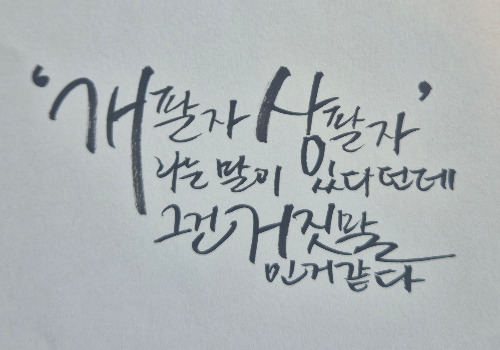 '개팔자 상팔자'
라는 말이 있다던데
그건 거짓말
인거같다